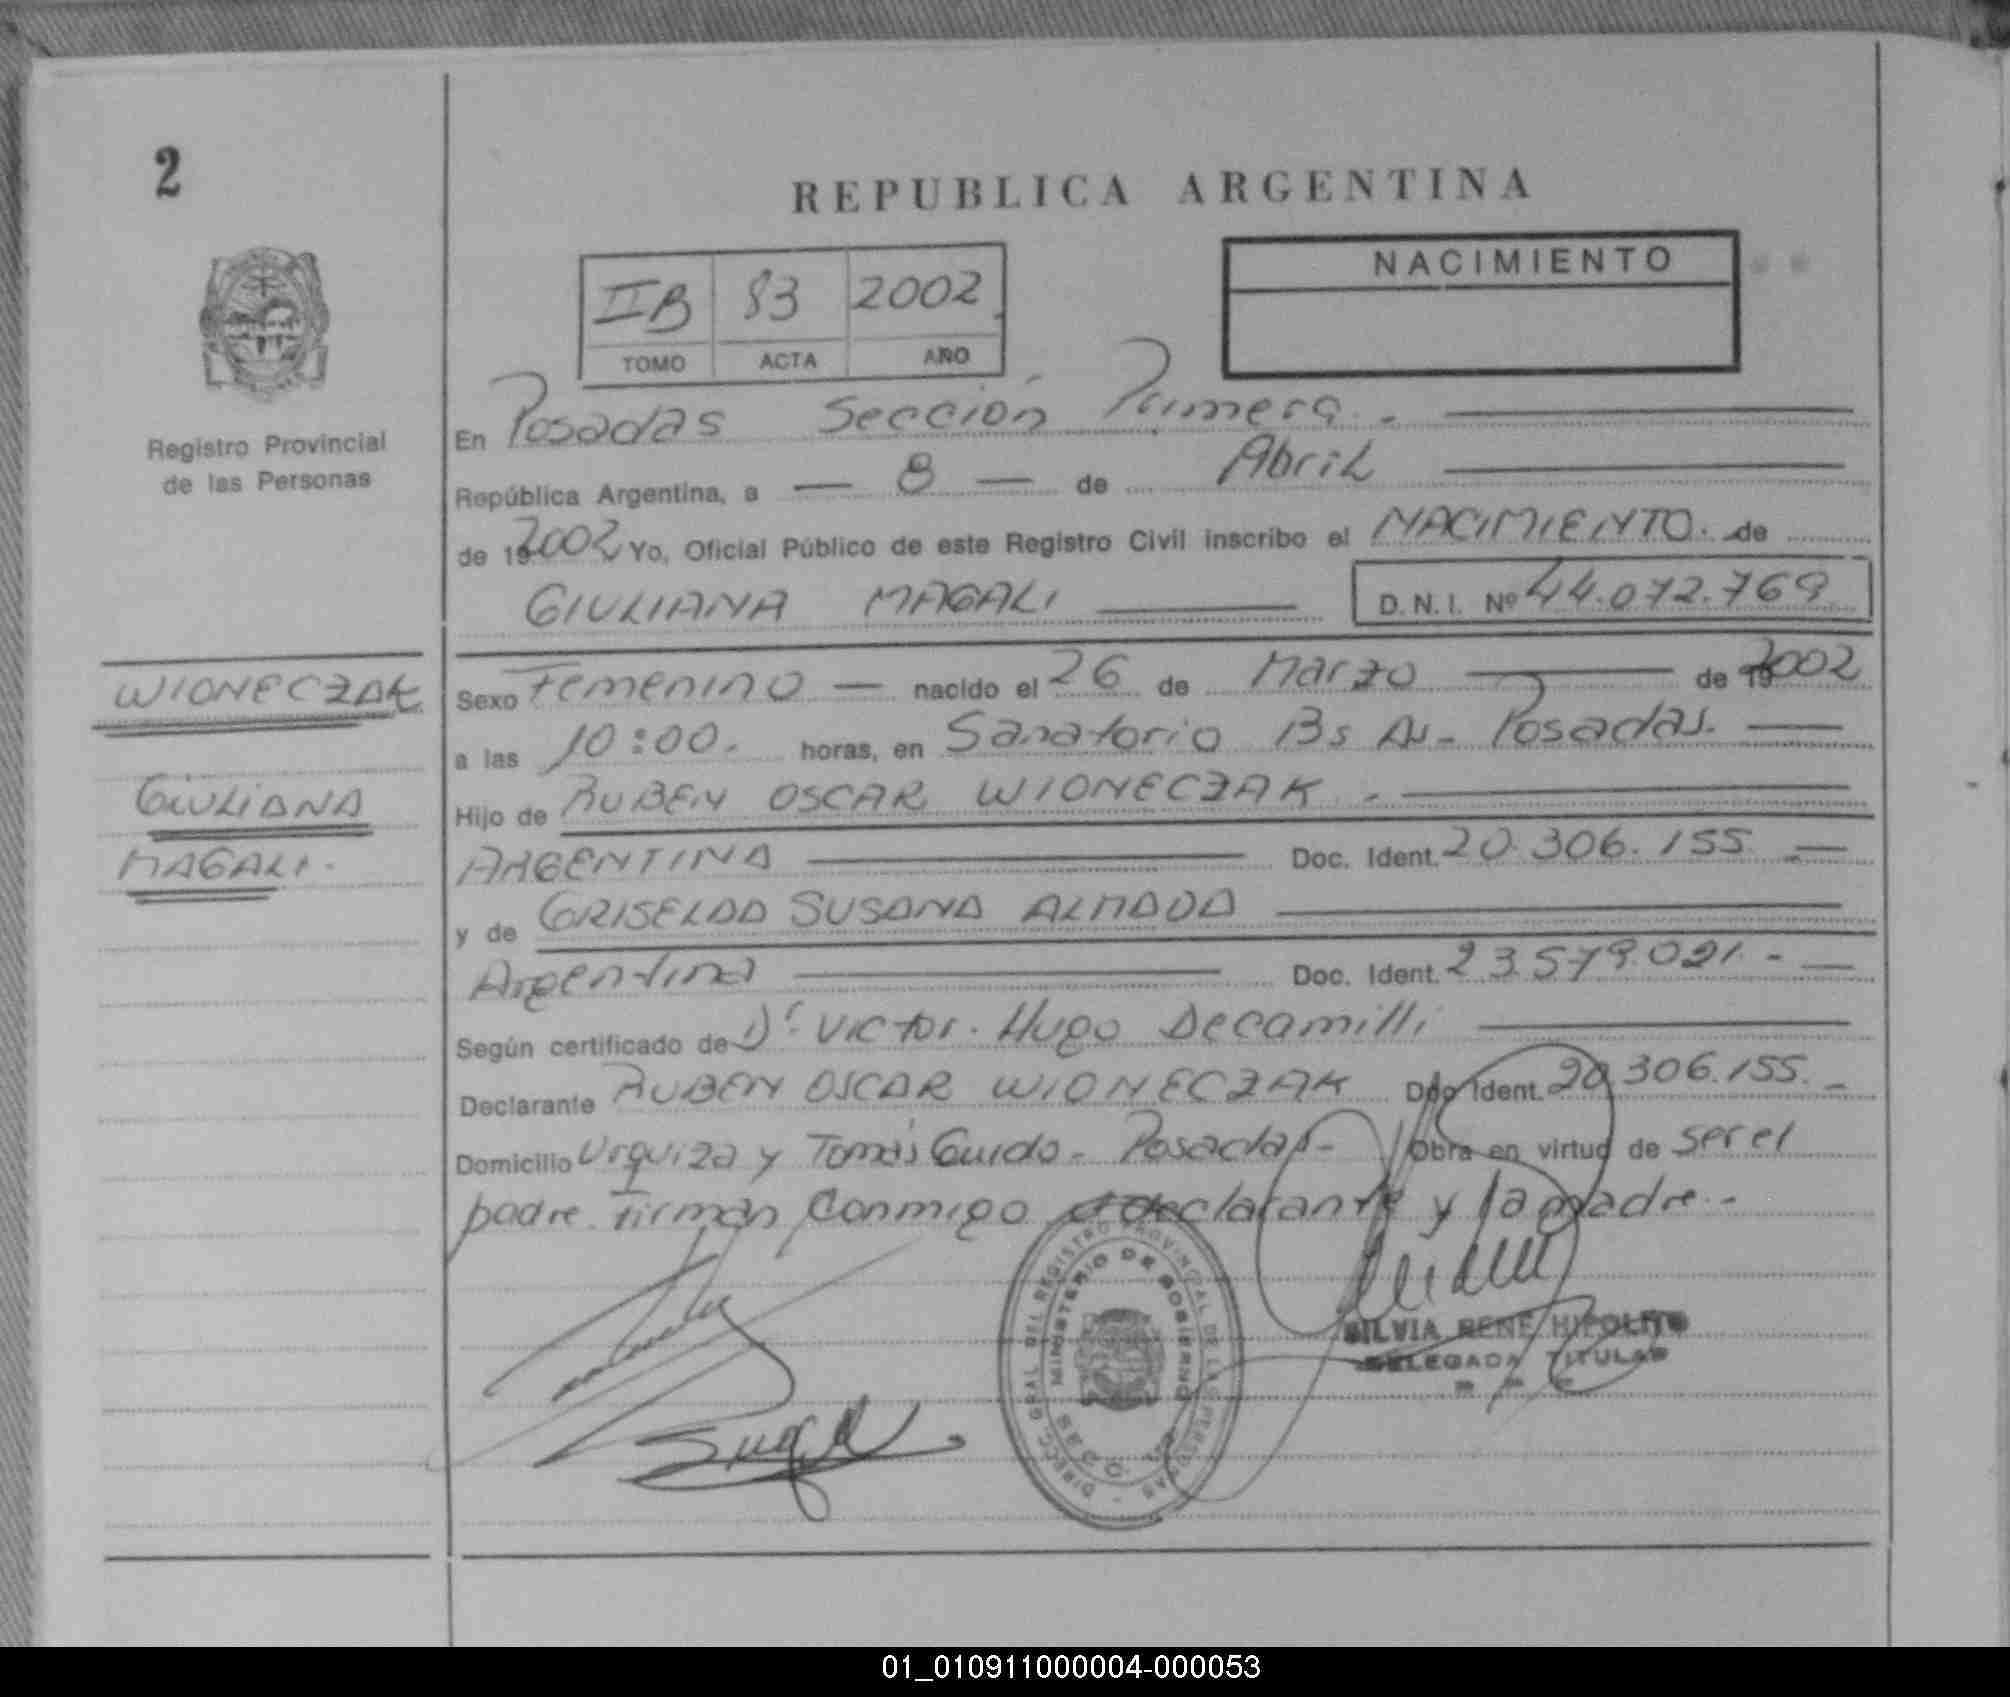 2
REPUBLICA ARGENTINA
NACIMIENTO
IIB 83 2002
TOMO ACTA AÑO
Registro Provincial
de las Personas
En Posadas Sección Primera.-
República Argentina, a — 8 — de Abril
de 192002 Yo, Oficial Público de este Registro Civil inscribo el NACIMIENTO. de
GIULIANA MAGALI D.N.I. Nº 44.072.769
WIONECZAK
GIULIANA
MAGALI.
Sexo Femenino — nacido el 26 de Marzo de 192002
a las 10:00. horas, en Sanatorio Bs As- Posadas.
Hijo de RUBEN OSCAR WIONECZAK.-
ARGENTINA Doc. Ident. 20.306.155.-
y de GRISELDA SUSANA ALMADA
Argentina Doc. Ident. 23.579.021.-
Según certificado de Dr. Victor Hugo Decamilli
Declarante RUBEN OSCAR WIONECZAK Doc Ident. 20.306.155.-
Domicilio Urquiza y Tomás Guido- Posadas- Obra en virtud de ser el
padre. Firman conmigo el declarante y la madre.-
DIRECC. GRAL. DEL REGISTRO PROVINCIAL DE LAS PERSONAS
MINISTERIO DE GOBIERNO
SILVIA RENE HIPOLITO
DELEGADA TITULAR
01_010911000004-000053